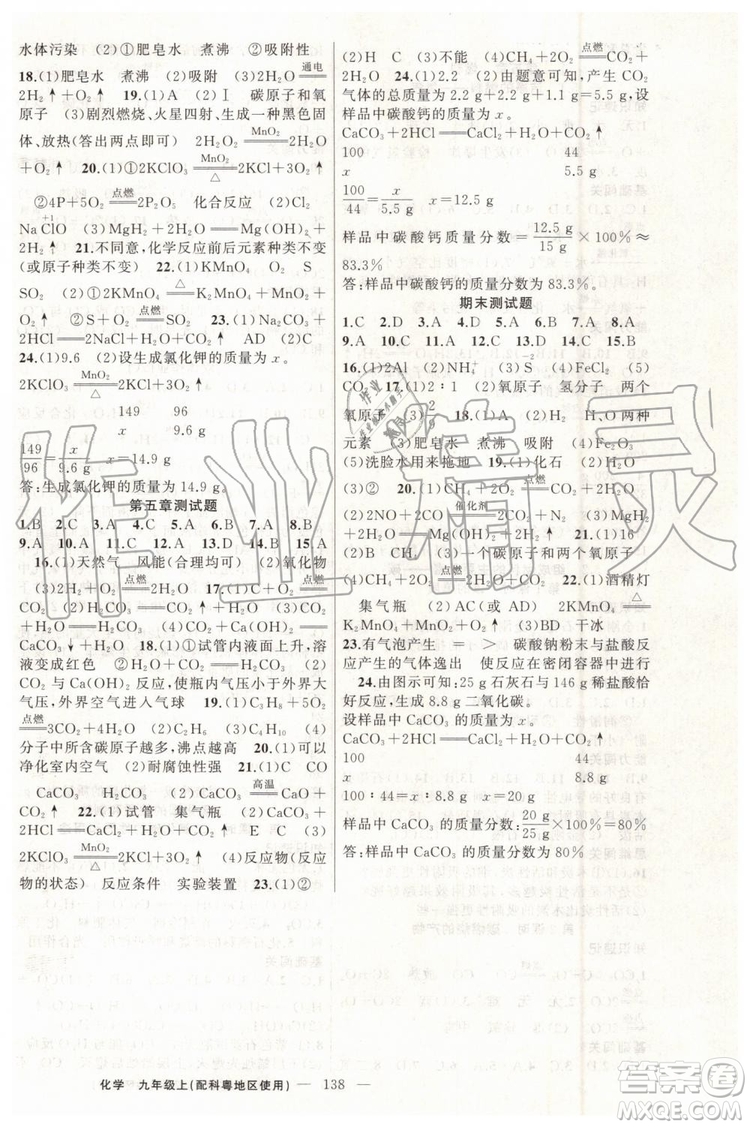 水体污染 (2)①肥皂水 煮沸 ②吸附性
18.(1)肥皂水 煮沸 (2)吸附 (3)2H₂O ══通电══
2H₂↑+O₂↑ 19.(1)A (2)Ⅰ 碳原子和氧
原子 (3)剧烈燃烧、火星四射、生成一种黑色固
体、放热(答出两点即可) 2H₂O₂ ══MnO₂══ 2H₂O
+O₂↑ 20.(1)①2KClO₃ ══MnO₂/△══ 2KCl+3O₂↑
②4P+5O₂ ══点燃══ 2P₂O₅ 化合反应 (2)Cl₂
NaClO(+1) (3)MgH₂+2H₂O══Mg(OH)₂+
2H₂↑ 21.不同意,化学反应前后元素种类不变
(或原子种类不变) 22.(1)K Mn O₂ O S
SO₂ (2)①2KMnO₄ ══△══ K₂MnO₄+MnO₂+
O₂↑ ②S+O₂ ══点燃══ SO₂ 23.(1)Na₂CO₃+
24.(1)9.6 (2)设生成氯化钾的质量为x。
2KClO₃ ══MnO₂/△══ 2KCl+3O₂↑
149 96
x 9.6 g
149/96=x/9.6 g x=14.9 g
答:生成氯化钾的质量为14.9 g。
第五章测试题
1.B 2.C 3.C 4.D 5.A 6.A 7.B 8.B
9.A 10.A 11.A 12.D 13.B 14.A 15.A
16.(1)天然气 风能(合理均可) (2)氧化物
(3)2H₂+O₂ ══点燃══ 2H₂O 17.(1)①Ca(OH)₂+
CO₂══CaCO₃↓+H₂O ②CO₂+H₂O══H₂CO₃
18.(1)①试管内液面上升,溶
液变成红色 ②CO₂+H₂O══H₂CO₃ (2)
CO₂与Ca(OH)₂反应,使瓶内气压小于外界大
气压,外界空气进入气球 19.(1)C₃H₈+5O₂
══点燃══ 3CO₂+4H₂O (2)C₂H₆ (3)C₄H₁₀ (4)
分子中所含碳原子越多,沸点越高 20.(1)可以
净化室内空气 (2)耐腐蚀性强 21.(1)C CO
CO₂ CaCO₃ (2)CaCO₃ ══高温══ CaO+
CO₂↑ 22.(1)试管 集气瓶 (2)CaCO₃+
2HCl══CaCl₂+H₂O+CO₂↑ E C (3)
2KClO₃ ══MnO₂/△══ 2KCl+3O₂↑ (4)反应物(反应
物的状态) 反应条件 实验装置 23.(1)②
(2)H C (3)不能 (4)CH₄+2O₂ ══点燃══ CO₂+
2H₂O 24.(1)2.2 (2)由题意可知,产生CO₂
气体的总质量为2.2 g+2.2 g+1.1 g=5.5 g,设
样品中碳酸钙的质量为x。
CaCO₃+2HCl══CaCl₂+H₂O+CO₂↑
100 44
x 5.5 g
100/44=x/5.5 g x=12.5 g
样品中碳酸钙质量分数=12.5 g/15 g×100%≈
83.3%
答:样品中碳酸钙的质量分数为83.3%。
期末测试题
1.C 2.D 3.A 4.D 5.A 6.A 7.A 8.A
9.A 10.A 11.A 12.D 13.C 14.B 15.B
16.(1)He (2)NH₃ (3)S(-2) (4)FeCl₂ (5)
CaCO₃ 17.(1)2 (2)氧原子 氢分子 两个
18.(1)A (2)H、O两种
元素 (3)肥皂水 煮沸 吸附 (4)Fe₂O₃
(5)洗脸水用来拖地 19.(1)化石
(3)② (4)CH₄+2O₂ ══点燃══ CO₂+2H₂O
(2)2NO+2CO ══催化剂══ N₂+2CO₂ (3)MgH₂+
(2)B CH₄ (3)一个碳原子和两个氧原子
(4)CH₄+2O₂ ══点燃══ CO₂+2H₂O 22.(1)酒精灯
集气瓶 (2)AC(或AD) 2KMnO₄ ══△══
K₂MnO₄+MnO₂+O₂↑ (3)BD 干冰
23.有气泡产生 = > 碳酸钠粉末与盐酸反
应产生的气体逸出 使反应在密闭容器中进行
24.由图示可知:25 g石灰石与146 g稀盐酸恰
好反应,生成8.8 g二氧化碳。
设样品中CaCO₃的质量为x。
CaCO₃+2HCl══CaCl₂+H₂O+CO₂↑
100 44
x 8.8 g
100∶44=x∶8.8 g x=20 g
样品中CaCO₃的质量分数:20 g/25 g×100%=80%
答:样品中CaCO₃的质量分数为80%
化学 九年级上(配科粤地区使用) — 138 —
作业精灵
答案圈
MXQE.COM